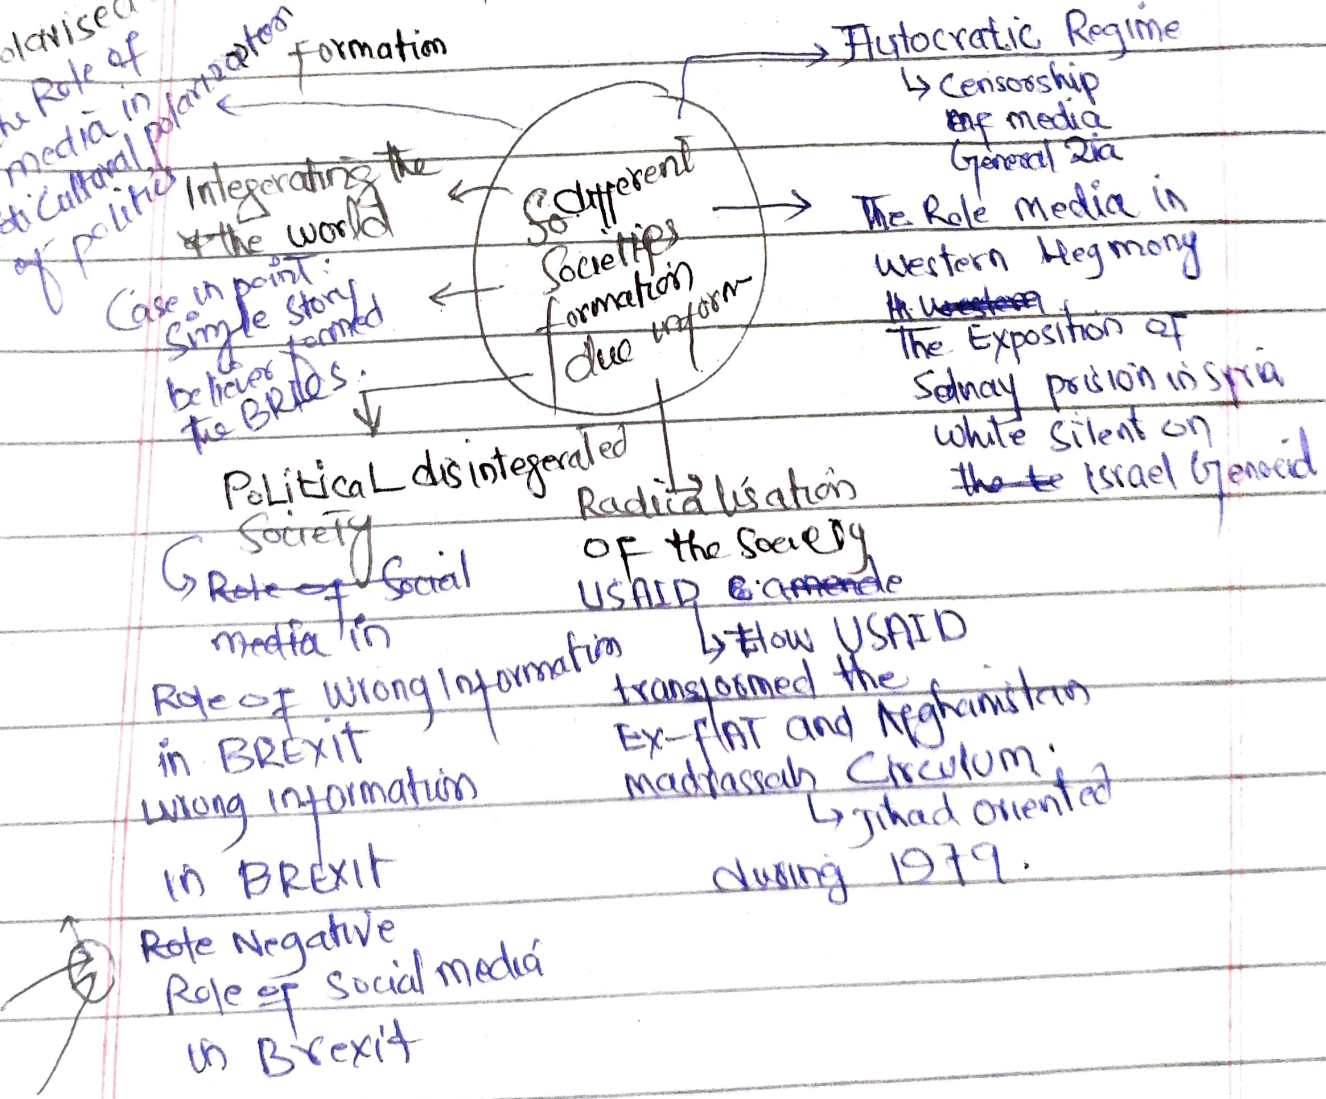 olarised
the Role of
media in
Cultural polarization
of politics
Formation
Integerating the
the world
Case in point:
Single story
believer formed
the BRICS.
So different
Societies
formation
due inform
Autocratic Regime
↳ Censorship
of media
General Zia
The Role media in
Western Hegmony
The Exposition of
Sednay prision in Syria
White silent on
Israel Genocid
Political disintegerated
Society
Role of Social
media in
Role of wrong Information
in BREXIT
wrong information
in BREXIT
Role Negative
Role of Social media
in Brexit
Radicalisation
OF the Society
USAID
↳ How USAID
transformed the
Ex-FATA and Afghanistan
madrassah Circulum:
↳ Jihad oriented
during 1979.